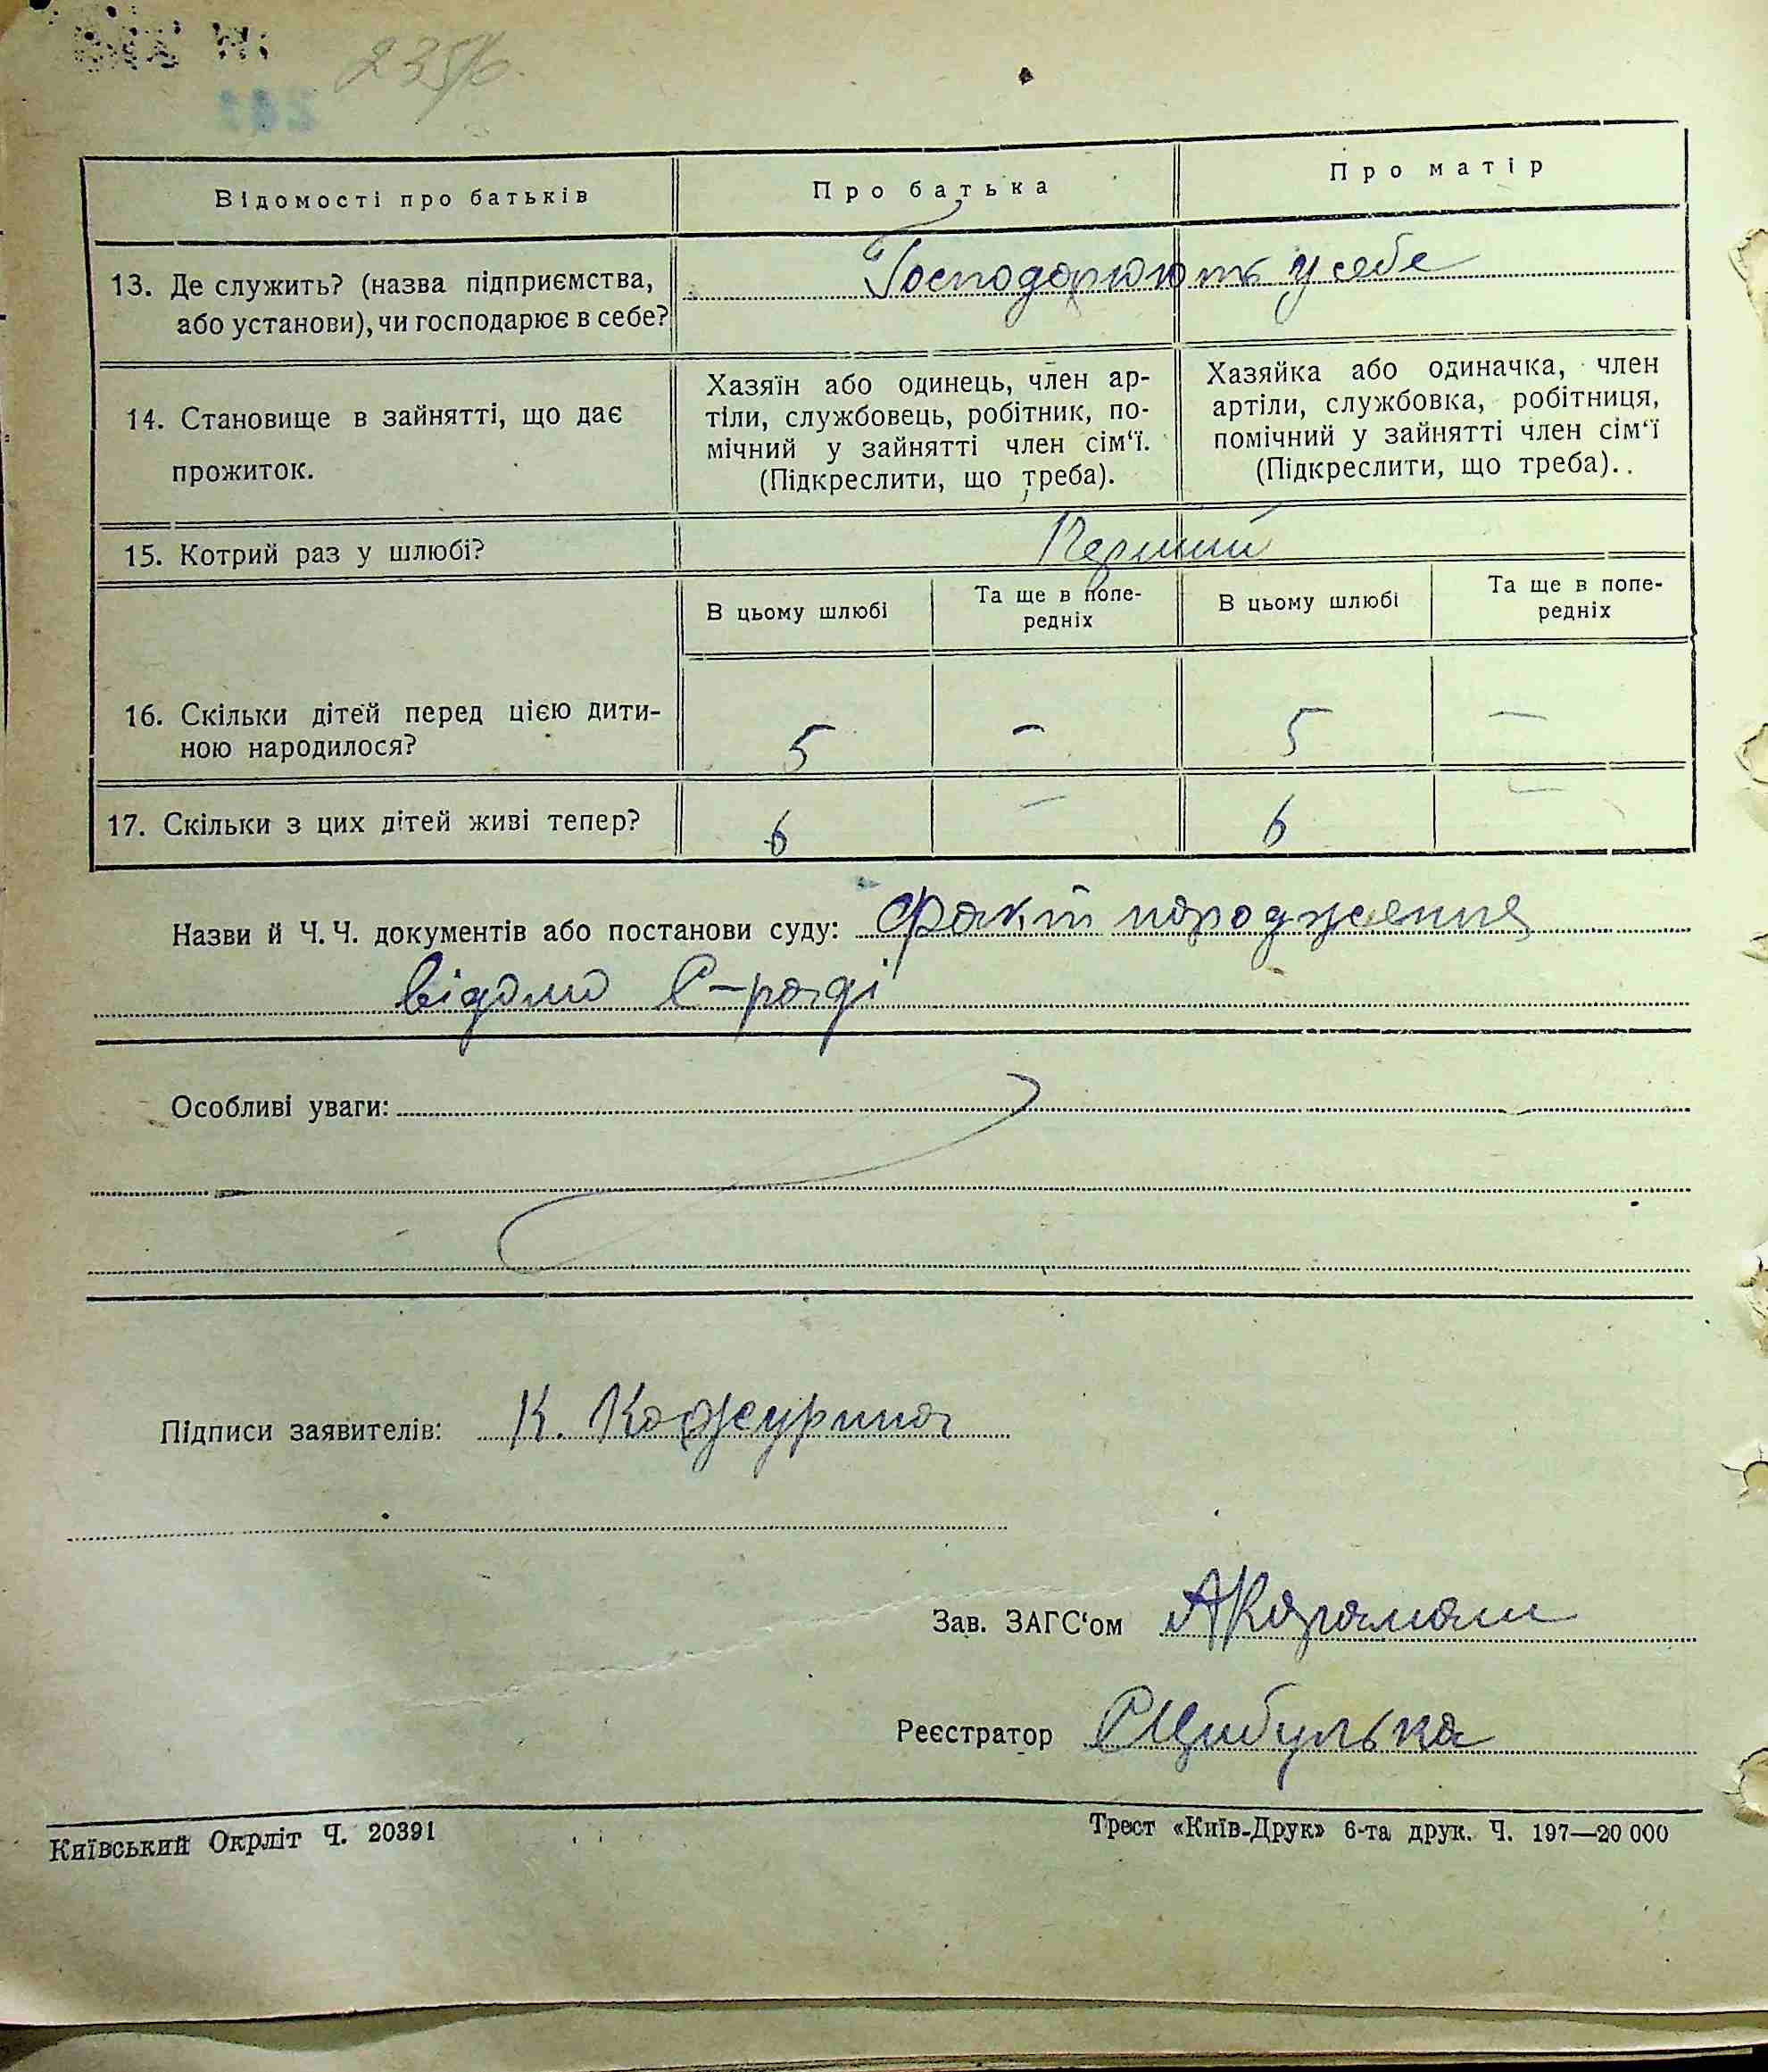 235/б.
Відомості про батьків
Про батька
Про матір
13. Де служить? (назва підприємства,
або установи), чи господарює в себе?
Господорюють у себе
14. Становище в зайнятті, що дає
прожиток.
Хазяїн або одинець, член ар-
тіли, службовець, робітник, по-
мічний у зайнятті член сім‘ї.
(Підкреслити, що треба).
Хазяйка або одиначка, член
артіли, службовка, робітниця,
помічний у зайнятті член сім‘ї
(Підкреслити, що треба).
15. Котрий раз у шлюбі?
Перший
В цьому шлюбі
Та ще в попе-
редніх
В цьому шлюбі
Та ще в попе-
редніх
16. Скільки дітей перед цією дити-
ною народилося?
5 – 5 –
17. Скільки з цих дітей живі тепер?
6 – 6 –
Назви й Ч. Ч. документів або постанови суду: Факт народження
відомо С-раді
Особливі уваги:
Підписи заявителів: К. Кожурина
Зав. ЗАГС‘ом АКараман
Реєстратор СЦибулька
Київський Окрліт Ч. 20391
Трест «Київ-Друк» 6-та друк. Ч. 197—20 000